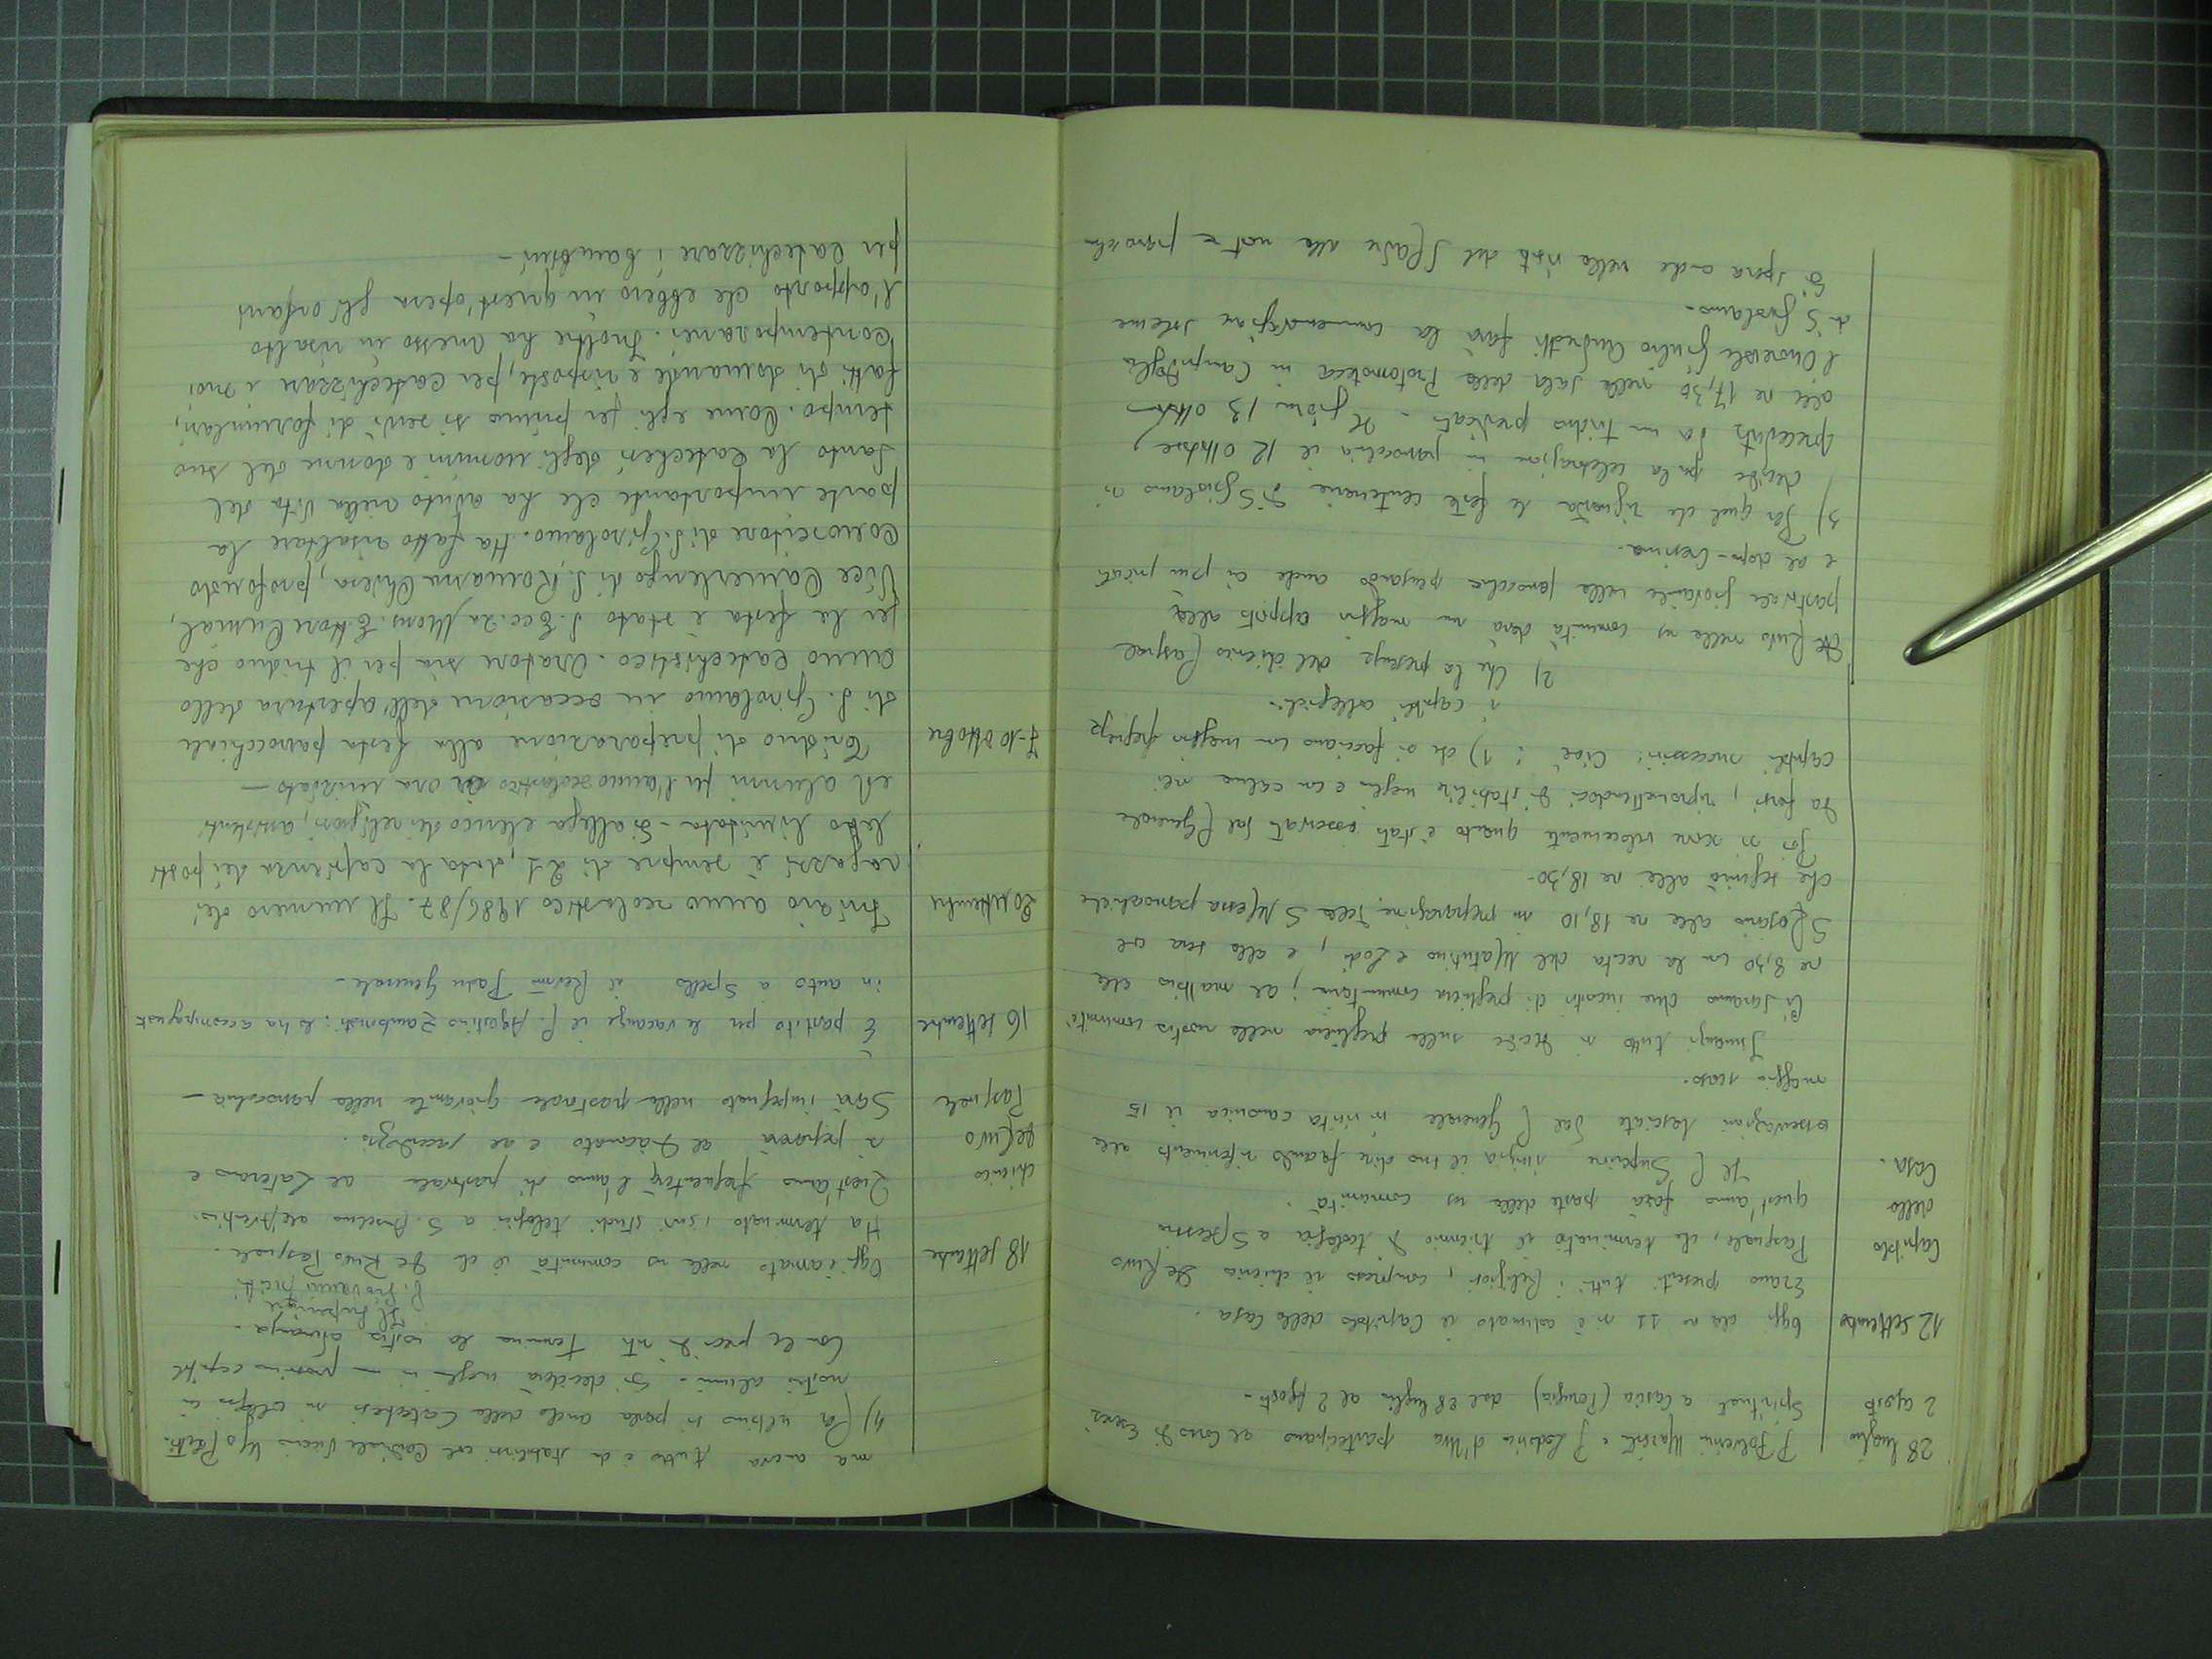 28 luglio
2 agosto
P. Lodovico d'Uva partecipano al Corso di Eserc.
Spirituali a Cascia (Perugia) dal 28 luglio al 2 Agosto -
12 Settembre
Oggi alle ore 11 si è adunato il Capitolo della Casa.
Capitolo
della
Casa.
Erano presenti tutti i Religiosi, compreso il chierico De Ruvo
Pasquale, che terminato il triennio di teologia a
quest'anno farà parte della ns comunità.
Il P. Superiore inizia il suo dire facendo riferimento alle
osservazioni lasciate dal P. Generale in visita canonica il 15
maggio scorso.
Innanzi tutto si decide sulla preghiera nella nostra comunità
Ci saranno due incontri di preghiera comunitaria; al mattino alle
ore 8,30 con la recita del Mattutino e Lodi, e alla sera col
S Rosario alle ore 18,10 in preparazione della S Messa parrocchiale
che seguirà alle ore 18,30-
Poi si scorre velocemente quanto è stato osservato dal P Generale
da farsi, ripromettendoci di stabilire meglio e con calma nei
capitoli successivi. Cioè : 1) che si facciano con maggior frequenza
i capitoli collegiali.-
2) Che la presenza del chierico Pasquale
De Ruvo nella ns comunità darà un maggior apporto alla
pastorale giovanile nella parrocchia pensando anche ai più piccoli
e al dopo-Cresima.
3) Per quel che riguarda le feste centenarie di S Girolamo si
decide per la celebrazione in parrocchia il 12 Ottobre,
preceduto da un triduo predicato - Il giorno 13 ottobre
alle ore 17,30 nella sala della Protomoteca in Campidoglio
l'Onorevole Giulio Andreotti farà la commemorazione solenne
di S Girolamo.
Si spera anche nella visita del S Padre alla nostra parrocchia
ma ancora tutto è da stabilirsi col Cardinale Vicario Ugo Poletti.
4) Per ultimo si parla anche della Catechesi in collegio ai
nostri alunni - Si deciderà meglio in un prossimo capitolo
Con la preci di rito termina la nostra adunanza.
Il Superiore
P. Giovanni
18 Settembre
chierico
De Ruvo
Pasquale
Oggi è arrivato nella ns comunità il ch De Ruvo Pasquale.
Ha terminato i suoi studi teologici a S. Anselmo all'Aventino.
Quest'anno frequenterà l'anno di pastorale al Laterano e
si preparerà al Diaconato e al sacerdozio.
Sarà impegnato nella pastorale giovanile nella parrocchia -
16 Settembre
È partito per le vacanze il P. Agostino Zambonati: lo ha accompagnato
in auto a Spello il Rev.mo Padre Generale -
20 settembre
Inizio anno scolastico 1986/87. Il numero dei
ragazzi è sempre di 21, data la capienza dei posti
letto limitata - Si allega elenco dei religiosi, assistenti
ed alunni per l'anno scolastico ora iniziato -
7-10 ottobre
Triduo di preparazione alla festa parrocchiale
di S. Girolamo in occasione dell'apertura dello
anno catechistico. Oratore sia per il triduo che
per la festa è stato S. Ecc.za Mons. Ettore Cunial,
Vice Camerlengo di S. Romana Chiesa, profondo
conoscitore di S. Girolamo. Ha fatto risaltare la
parte importante che ha avuto nella vita del
Santo la catechesi degli uomini e donne del suo
tempo. Come egli per primo si servì di formulari,
fatti di domande e risposte, per catechizzare i suoi
contemporanei. Inoltre ha messo in risalto
l'apporto che ebbero in quest'opera gli orfani
per catechizzare i bambini -